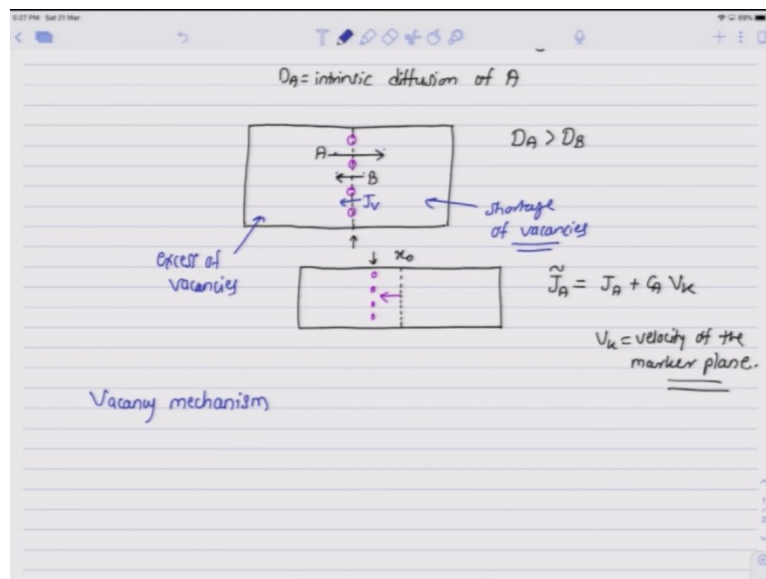 5:27 PM Sat 21 Mar
89%
D_A = intrinsic diffusion of A
D_A > D_B
A
B
J_V
shortage
of vacancies
excess of
vacancies
x_0
J̃_A = J_A + C_A V_K
V_K = velocity of the
marker plane.
Vacancy mechanism